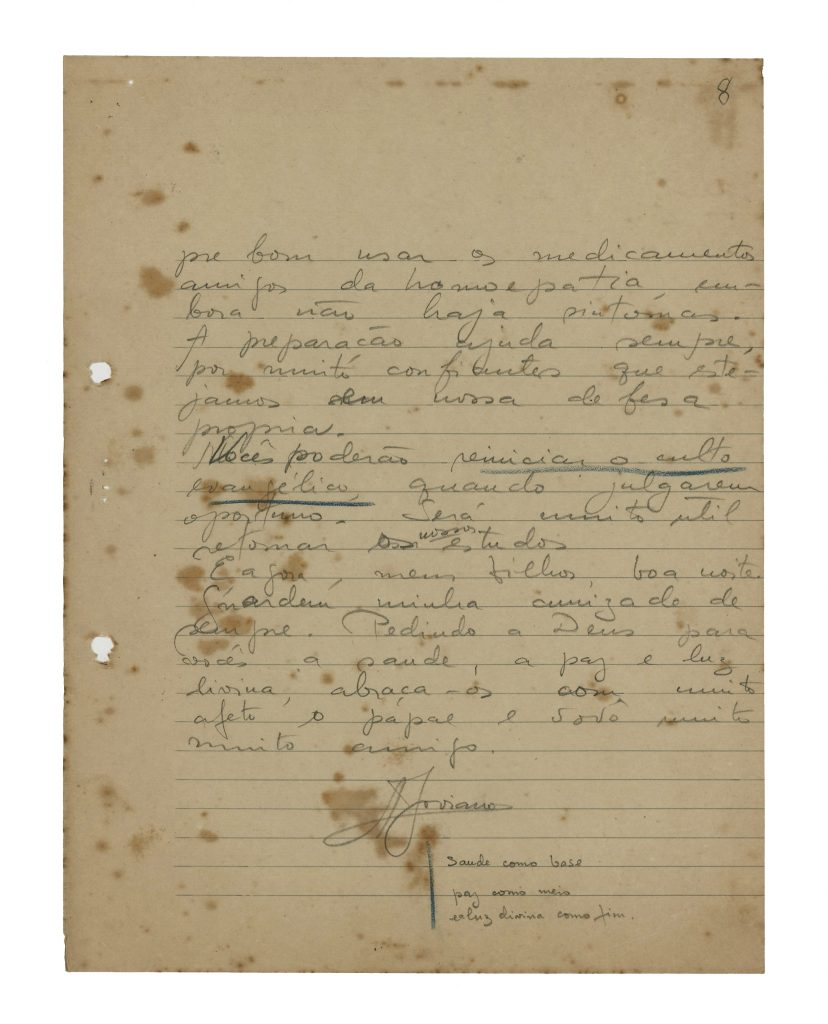 8
pre bom usar os medicamentos
amigos da homoepatia, em-
bora não haja sintomas.
A preparação ajuda sempre,
por muito confiantes que este-
jamos em nossa defesa
propria.
Vocês poderão reiniciar o culto
evangélico, quando julgarem
oportuno. Será muito util
retomar nossos estudos
E agora, meus filhos, boa noite.
Guardem minha amizade de
sempre. Pedindo a Deus para
vocês a saude, a paz e luz
divina, abraça-os com muito
afeto o papae e vovô muito
muito amigo.
A Joviano
Saude como base
paz como meio
e luz divina como fim.